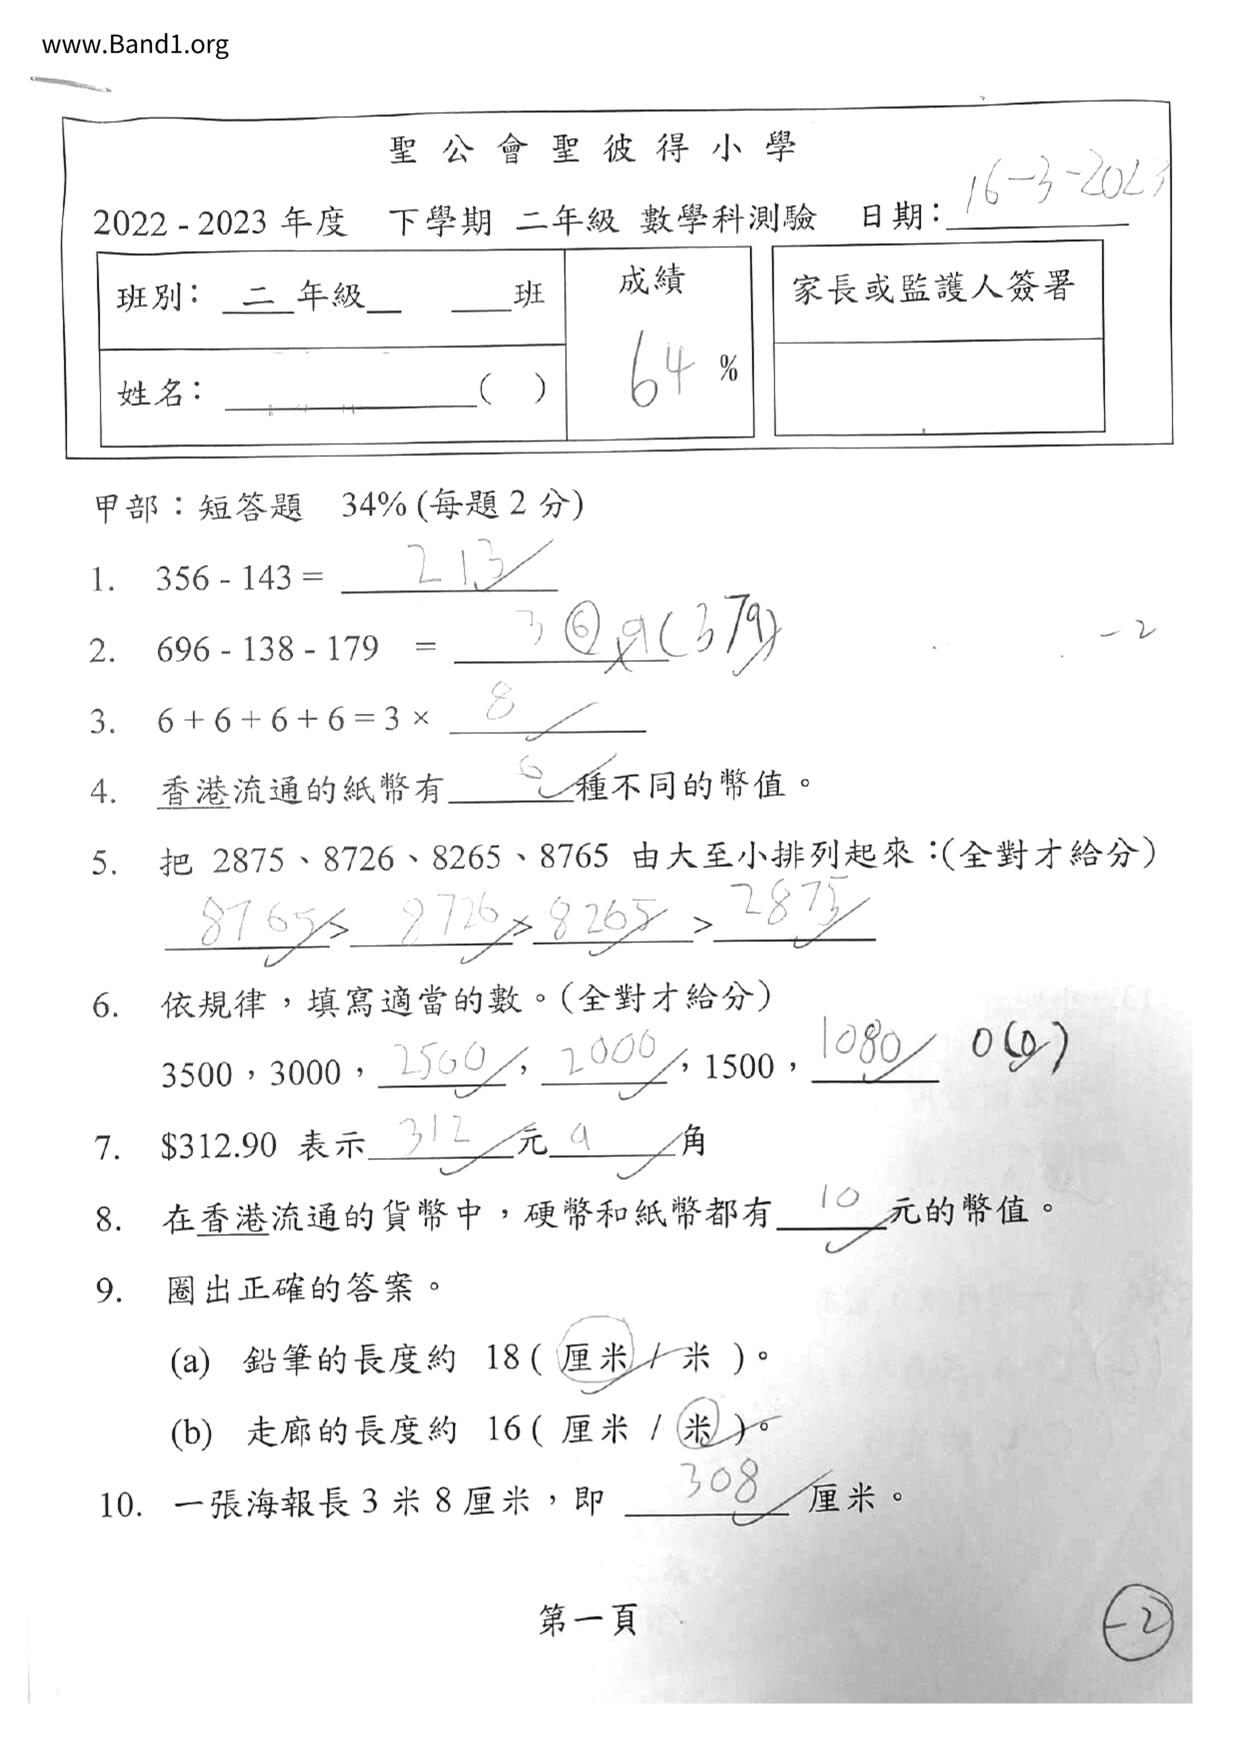 www.Band1.org
聖公會聖彼得小學
2022 - 2023 年度 下學期 二年級 數學科測驗 日期：16-3-2023
班別： 二 年級 班
成績
家長或監護人簽署
64 %
姓名： ( )
甲部：短答題 34% (每題 2 分)
1. 356 - 143 = 213
2. 696 - 138 - 179 = 3 6 9 (379) -2
3. 6 + 6 + 6 + 6 = 3 × 8
4. 香港流通的紙幣有 6 種不同的幣值。
5. 把 2875、8726、8265、8765 由大至小排列起來：(全對才給分)
8765 > 8726 > 8265 > 2875
6. 依規律，填寫適當的數。(全對才給分)
3500，3000，2500，2000，1500，1080 0(0)
7. $312.90 表示 312 元 9 角
8. 在香港流通的貨幣中，硬幣和紙幣都有 10 元的幣值。
9. 圈出正確的答案。
(a) 鉛筆的長度約 18 ( 厘米 / 米 )。
(b) 走廊的長度約 16 ( 厘米 / 米 )。
10. 一張海報長 3 米 8 厘米，即 308 厘米。
第一頁
-2